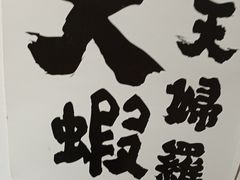 天婦羅
大蝦